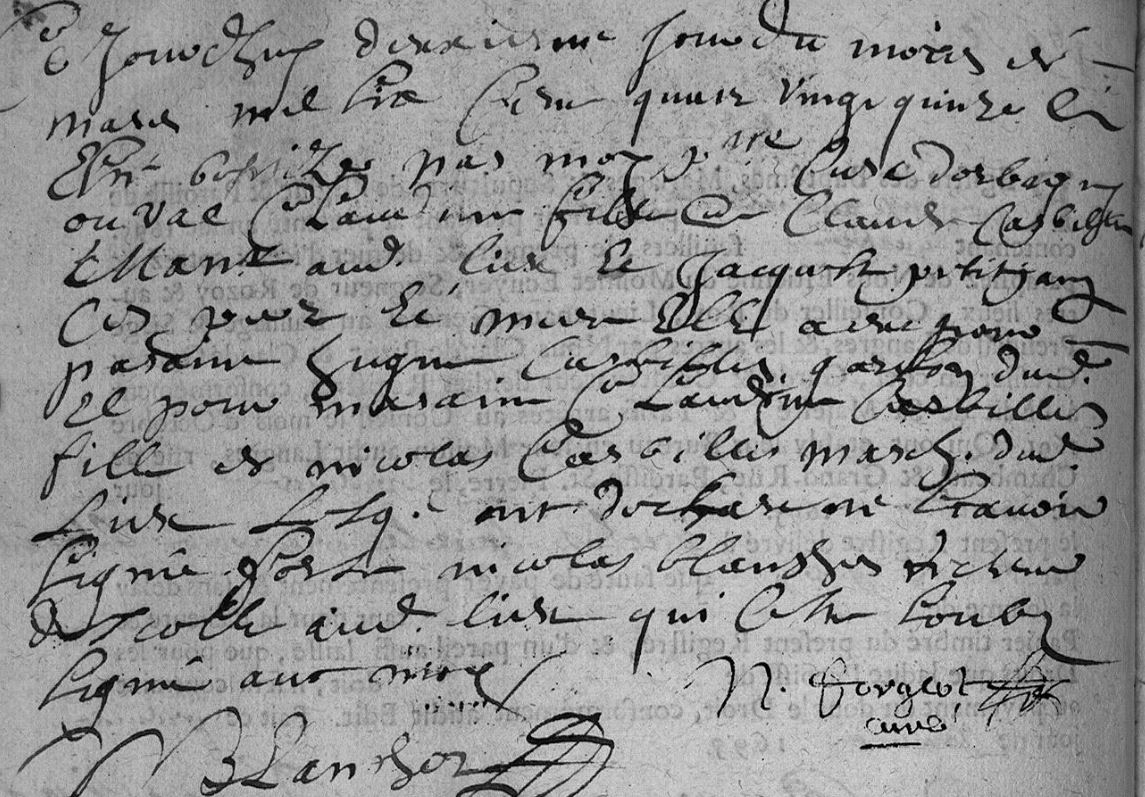 Ce Jourdhuy deuxiesme Jour du mois de
mars mil six Cens quatr vingt quinze a
Esté batizée par moy pbre Curé dorbigny
ou val Claudine fille de Claude Carbillet
audt lieu et Jacquette petitjean
ses pere et mere Elle a eu pour
parain hugue Carbillet garson dud.
et pour maraine Claudine Carbillet
fille de nicolas Carbillet march. dud.
Lieu Lesq. ont declare ne scavoir
signé nicolas blanchor recteur
descolle aud. lieu qui sest soubz
signé avec moy
N. Forgeot
curé
BLanchor